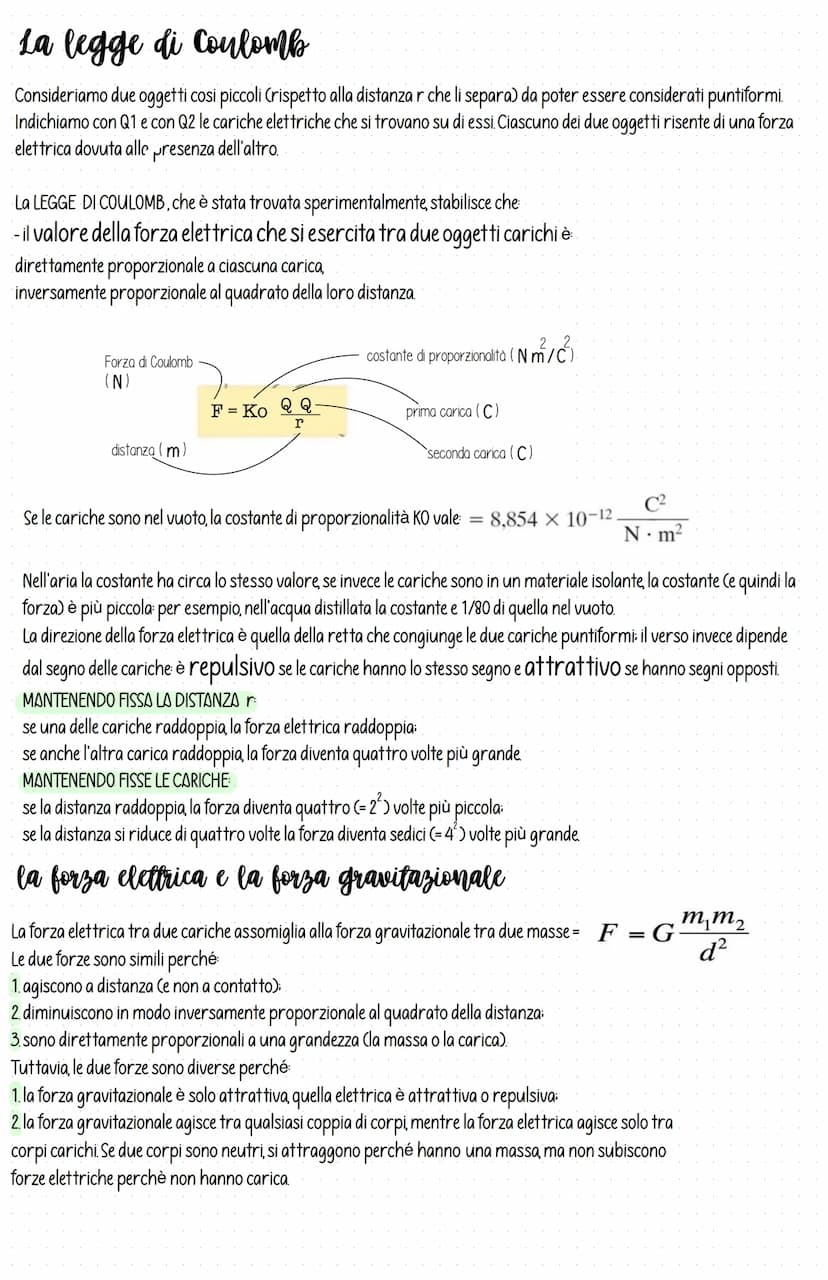 La legge di Coulomb
Consideriamo due oggetti cosi piccoli (rispetto alla distanza r che li separa) da poter essere considerati puntiformi.
Indichiamo con Q1 e con Q2 le cariche elettriche che si trovano su di essi. Ciascuno dei due oggetti risente di una forza
elettrica dovuta alle presenza dell'altro.
La LEGGE DI COULOMB, che è stata trovata sperimentalmente, stabilisce che:
- il valore della forza elettrica che si esercita tra due oggetti carichi è:
direttamente proporzionale a ciascuna carica,
inversamente proporzionale al quadrato della loro distanza.
costante di proporzionalità (N m²/C²)
Forza di Coulomb
(N)
F = Ko Q Q / r
prima carica (C)
distanza (m)
seconda carica (C)
Se le cariche sono nel vuoto, la costante di proporzionalità KO vale: = 8,854 × 10⁻¹² C² / N · m²
Nell'aria la costante ha circa lo stesso valore, se invece le cariche sono in un materiale isolante, la costante (e quindi la
forza) è più piccola: per esempio, nell'acqua distillata la costante e 1/80 di quella nel vuoto.
La direzione della forza elettrica è quella della retta che congiunge le due cariche puntiformi; il verso invece dipende
dal segno delle cariche: è repulsivo se le cariche hanno lo stesso segno e attrattivo se hanno segni opposti.
MANTENENDO FISSA LA DISTANZA r:
se una delle cariche raddoppia, la forza elettrica raddoppia;
se anche l'altra carica raddoppia, la forza diventa quattro volte più grande.
MANTENENDO FISSE LE CARICHE:
se la distanza raddoppia, la forza diventa quattro (= 2²) volte più piccola;
se la distanza si riduce di quattro volte la forza diventa sedici (= 4²) volte più grande.
la forza elettrica e la forza gravitazionale
La forza elettrica tra due cariche assomiglia alla forza gravitazionale tra due masse = F = G m₁m₂ / d²
Le due forze sono simili perché:
1. agiscono a distanza (e non a contatto);
2. diminuiscono in modo inversamente proporzionale al quadrato della distanza;
3. sono direttamente proporzionali a una grandezza (la massa o la carica).
Tuttavia, le due forze sono diverse perché:
1. la forza gravitazionale è solo attrattiva, quella elettrica è attrattiva o repulsiva;
2. la forza gravitazionale agisce tra qualsiasi coppia di corpi, mentre la forza elettrica agisce solo tra
corpi carichi. Se due corpi sono neutri, si attraggono perché hanno una massa, ma non subiscono
forze elettriche perchè non hanno carica.